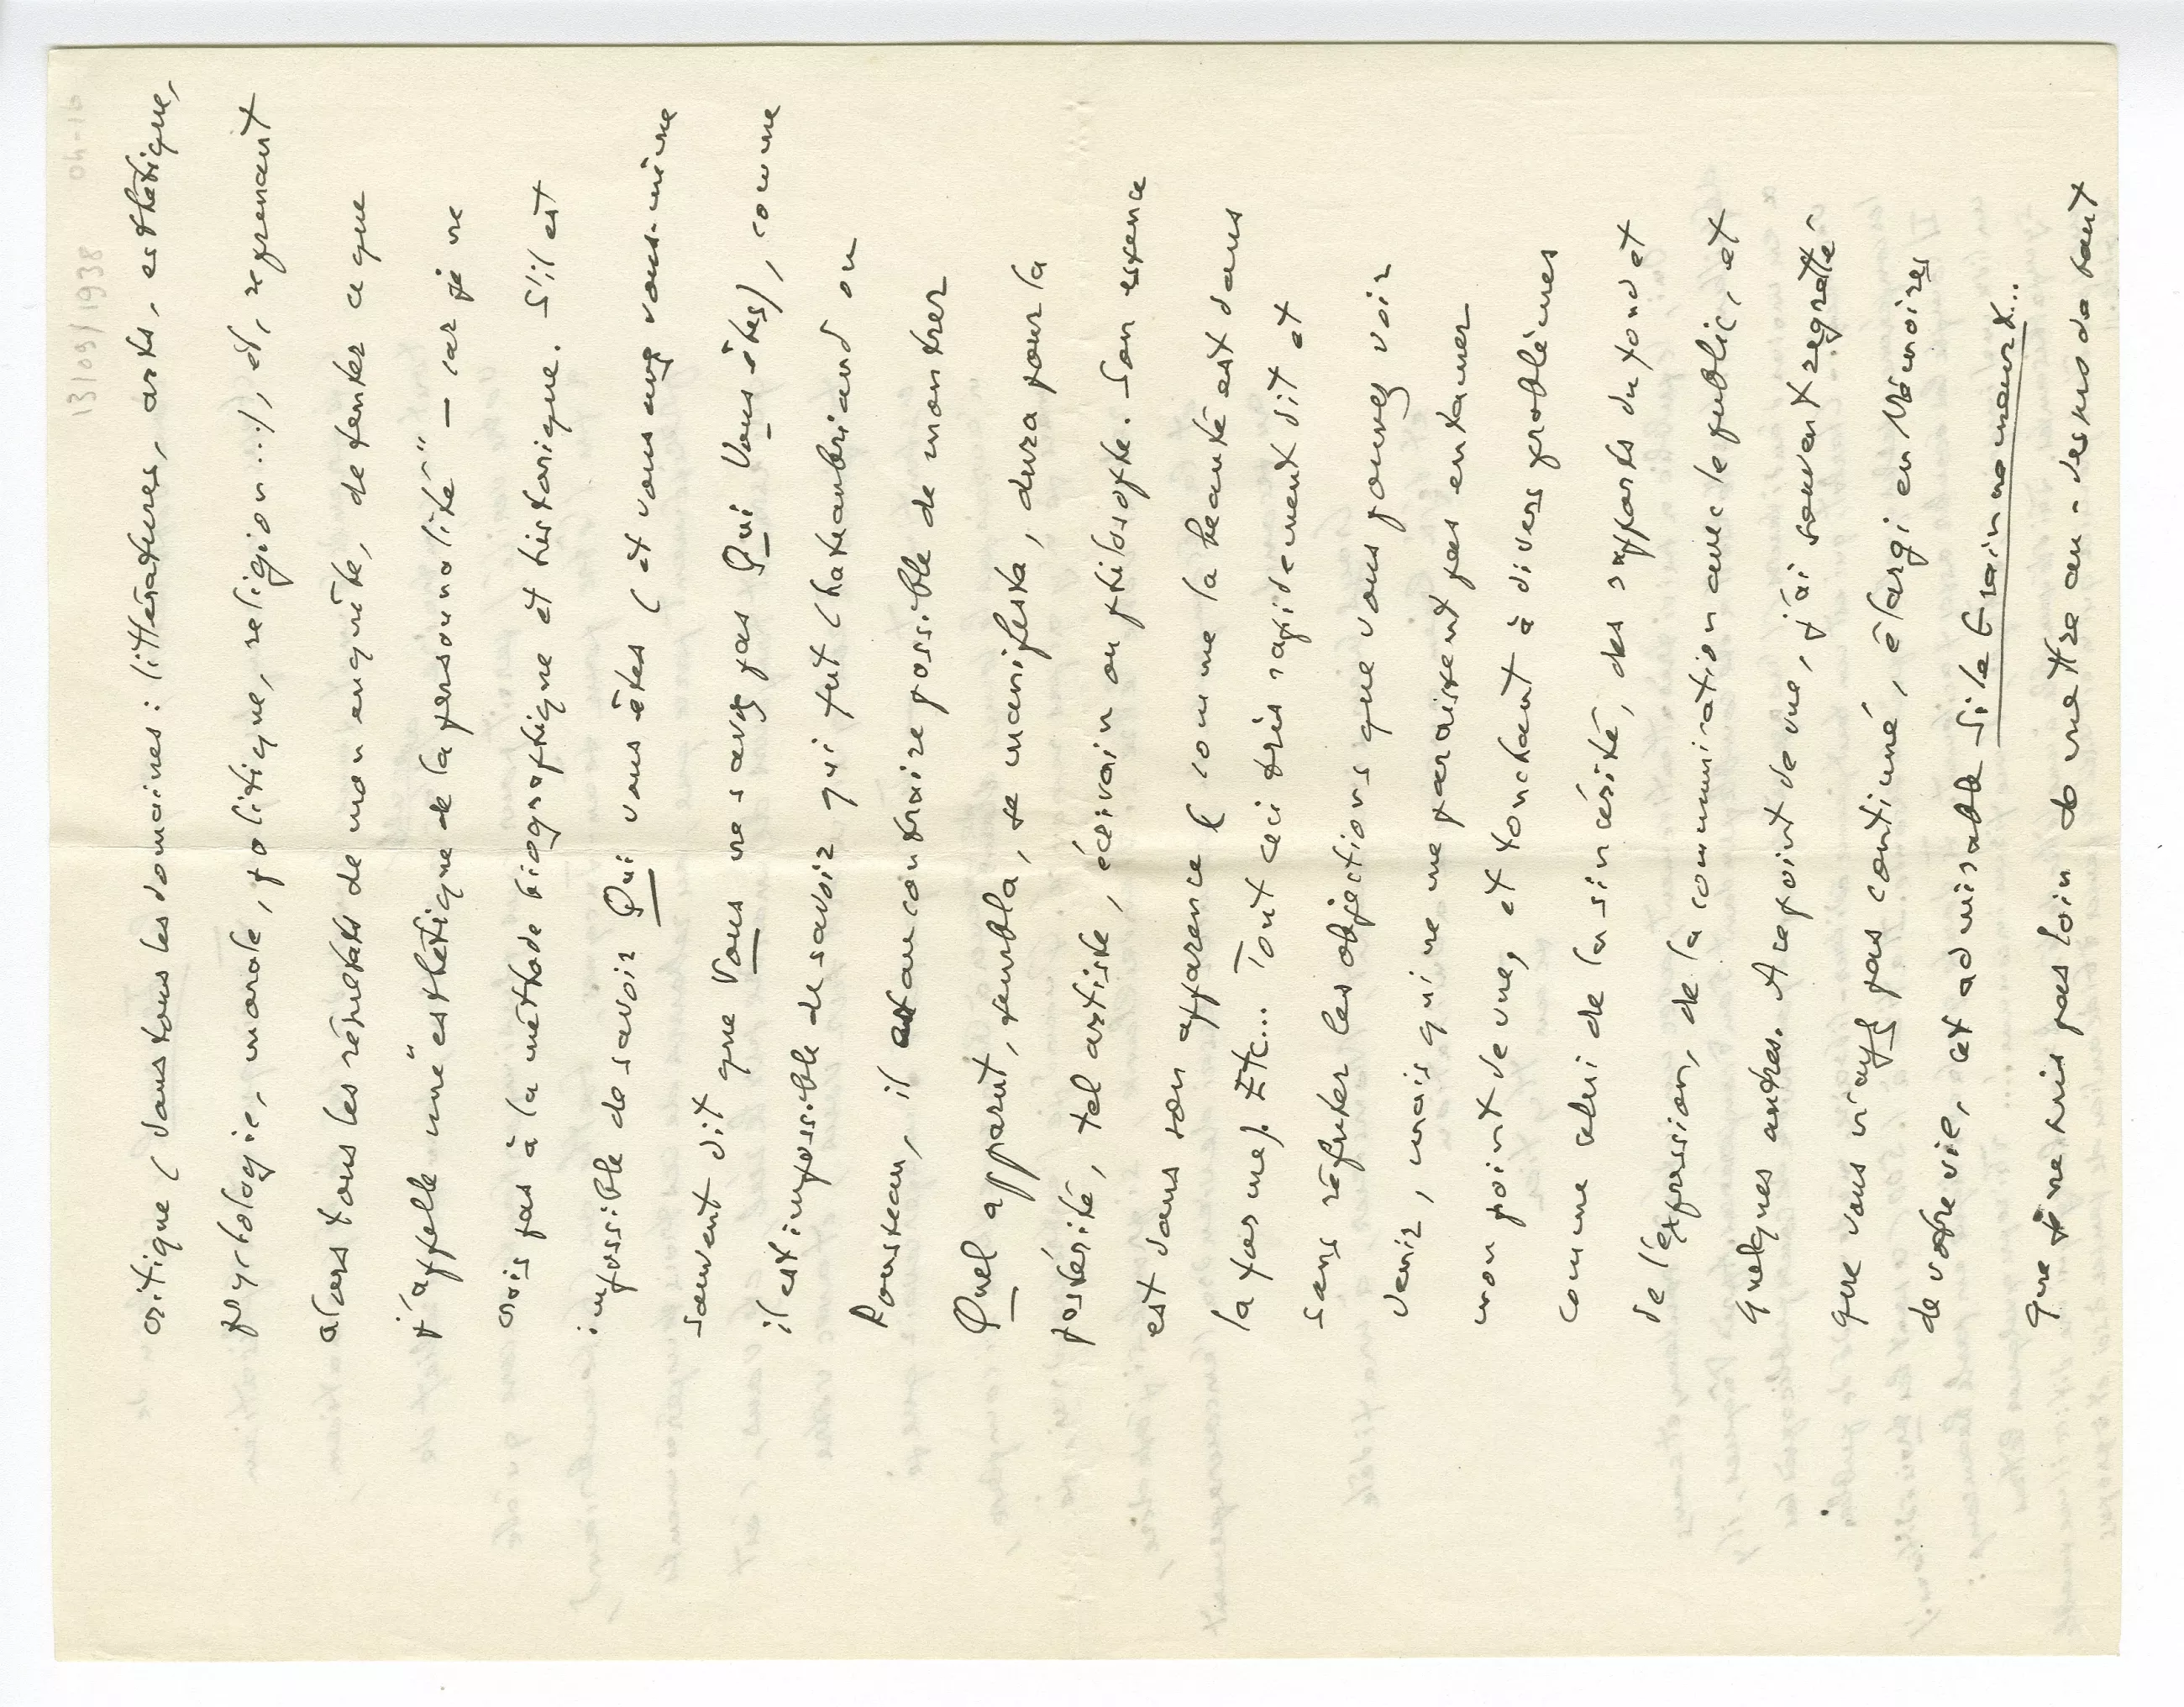 13/09/1938 04-16
critique (dans tous les domaines : littératures, arts, esthétique,
psychologie, morale, politique, religion...), et, reprenant
alors tous les résultats de mon enquête, de tenter ce que
j'appelle une "esthétique de la personnalité" – car je ne
crois pas à la méthode biographique et historique. S'il est
impossible de savoir Qui vous êtes (et vous avez vous-même
souvent dit que Vous ne savez pas Qui Vous êtes), comme
il est impossible de savoir qui fut Chateaubriand ou
Rousseau, il est au contraire possible de montrer
Quel apparut, sembla, se manifesta, dura pour la
postérité, tel artiste, écrivain ou philosophe. Son essence
est dans son apparence (comme la beauté est dans
la forme). Etc... Tout ceci très rapidement dit et
sans réfuter les objections que vous pouvez voir
venir, mais qui ne me paraissent pas entamer
mon point de vue, et touchant à divers problèmes
comme celui de la sincérité, des rapports du fond et
de l'expression, de la communication avec le public, et
quelques autres. A ce point de vue, j'ai souvent regretté
que vous n'ayez pas continué, élargi en Mémoires
de votre vie, cet admirable Si le Grain ne meurt...
que je ne suis pas loin de mettre au-dessus de tout